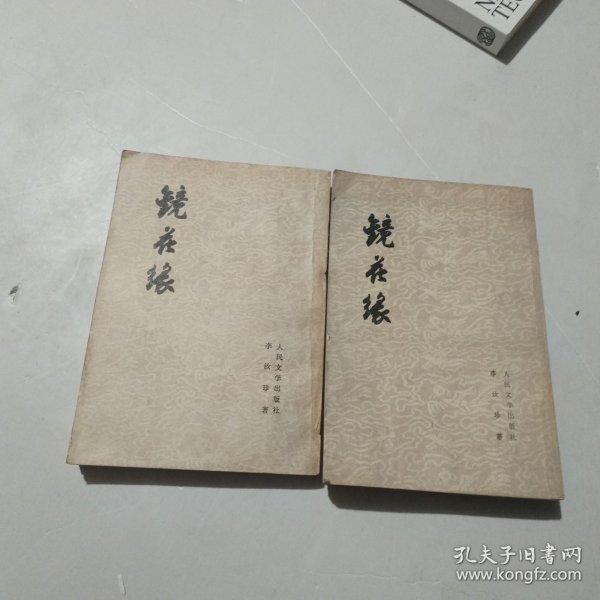 镜花缘
李汝珍 著
人民文学出版社
镜花缘
李汝珍 著
人民文学出版社
孔夫子旧书网
www.kongfz.com